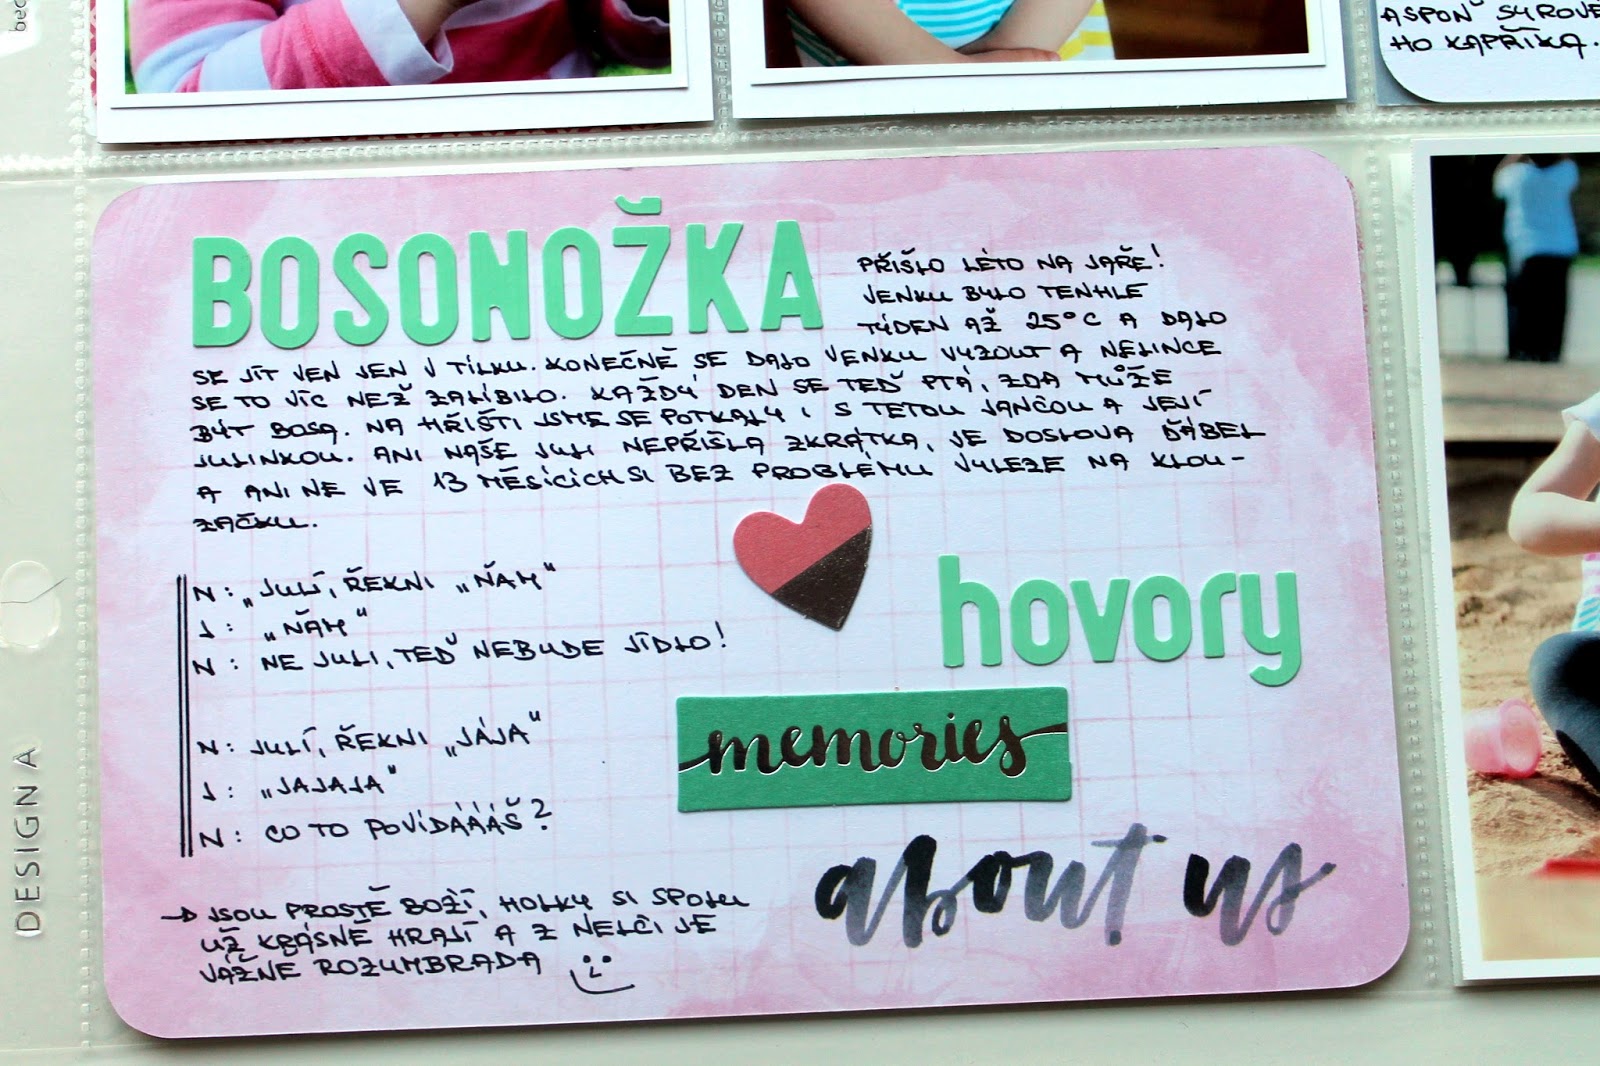 bec
ASPOŇ SYROVÉ
HO KAPŘÍKA.
BOSONOŽKA
PŘIŠLO LÉTO NA JAŘE!
VENKU BYLO TENHLE
TÝDEN AŽ 25°C A DALO
SE JÍT VEN JEN V TÍLKU. KONEČNĚ SE DALO VENKU VYZOUT A NELINCE
SE TO VÍC NEŽ ZALÍBILO. KAŽDÝ DEN SE TEĎ PTÁ, ZDA MŮŽE
BÝT BOSA. NA HŘIŠTI JSME SE POTKALY I S TETOU JANČOU A JEJÍ
JULINKOU. ANI NAŠE JULI NEPŘIŠLA ZKRÁTKA, JE DOSLOVA ĎÁBEL
A ANI NE VE 13 MĚSÍCÍCH SI BEZ PROBLÉMU VYLEZE NA KLOU-
ZAČKU.
N: „JULÍ, ŘEKNI „ŇAM"
J: „ŇAM"
N: NE JULI, TEĎ NEBUDE JÍDLO!
hovory
N: JULÍ, ŘEKNI „JÁJA"
J: „JAJAJA"
N: CO TO POVÍDÁÁÁŠ?
memories
about us
→ JSOU PROSTĚ BOŽÍ, HOLKY SI SPOLU
UŽ KRÁSNĚ HRAJÍ A Z NELČI JE
VÁŽNĚ ROZUMBRADA
DESIGN A